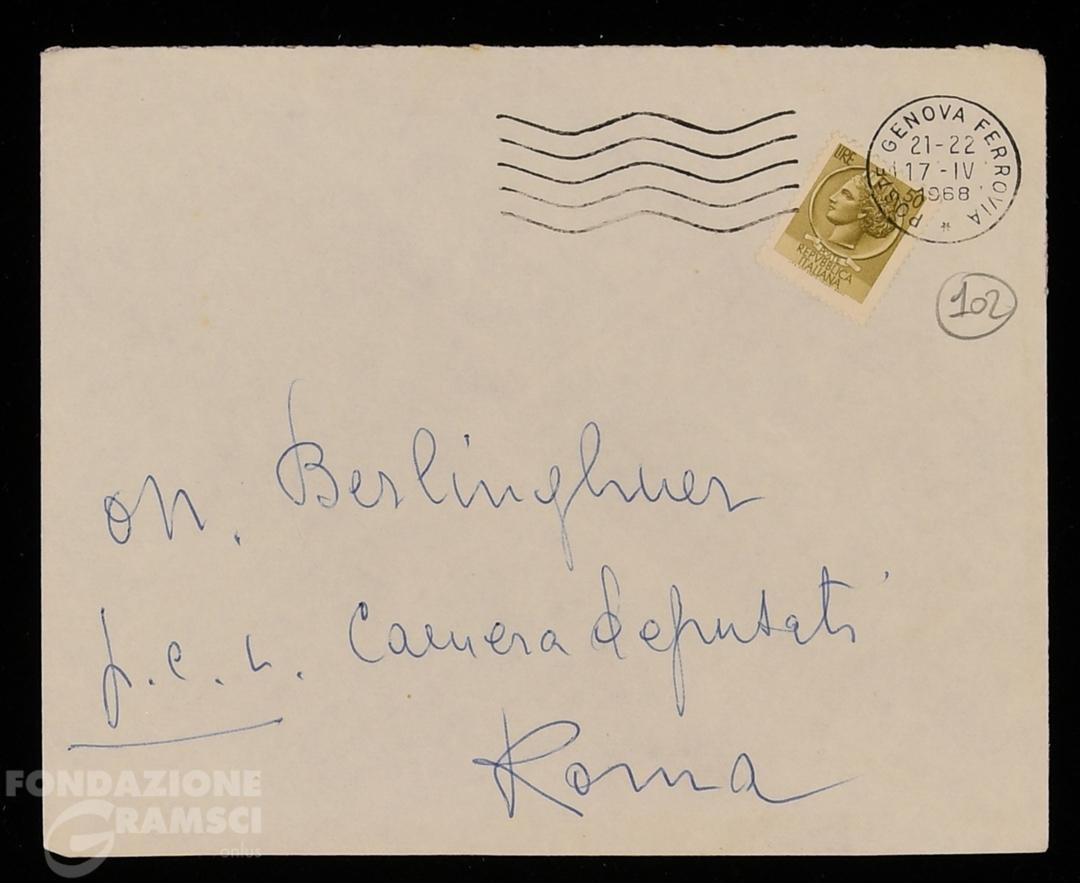 GENOVA FERROVIA
21-22
17-IV
1968
POSTE
*
LIRE 50
POSTE
REPVBBLICA
ITALIANA
102
on. Berlinghuer
p.c.i. Camera deputati
Roma
FONDAZIONE
GRAMSCI
onlus